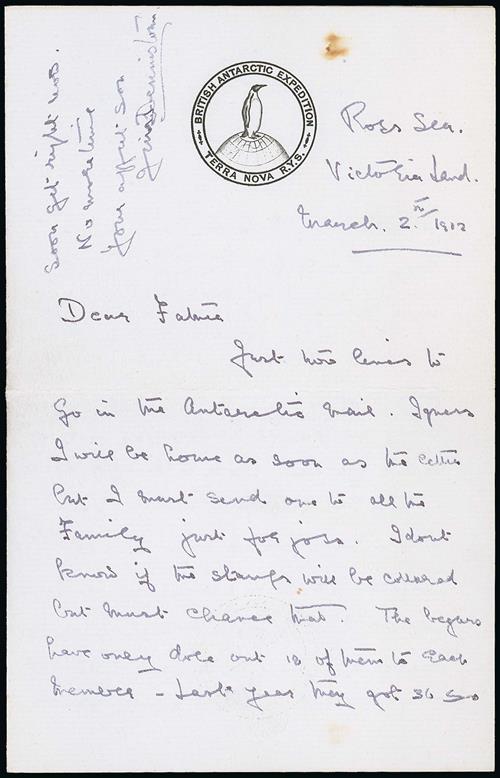 BRITISH ANTARCTIC EXPEDITION
TERRA NOVA R.Y.S.
Ross Sea.
Victoria Land.
March. 2nd/1912
Dear Father
Just two lines to
go in the Antarctic mail. I guess
I will be home as soon as the letter
but I must send one to all the
Family just for joss. I dont
know if the stamps will be collared
but must chance that. The begars
have only dole out 12 of them to each
member - Last year they got 36 so
soon get right
No more time
Your affect son
Jim Dennistoun.